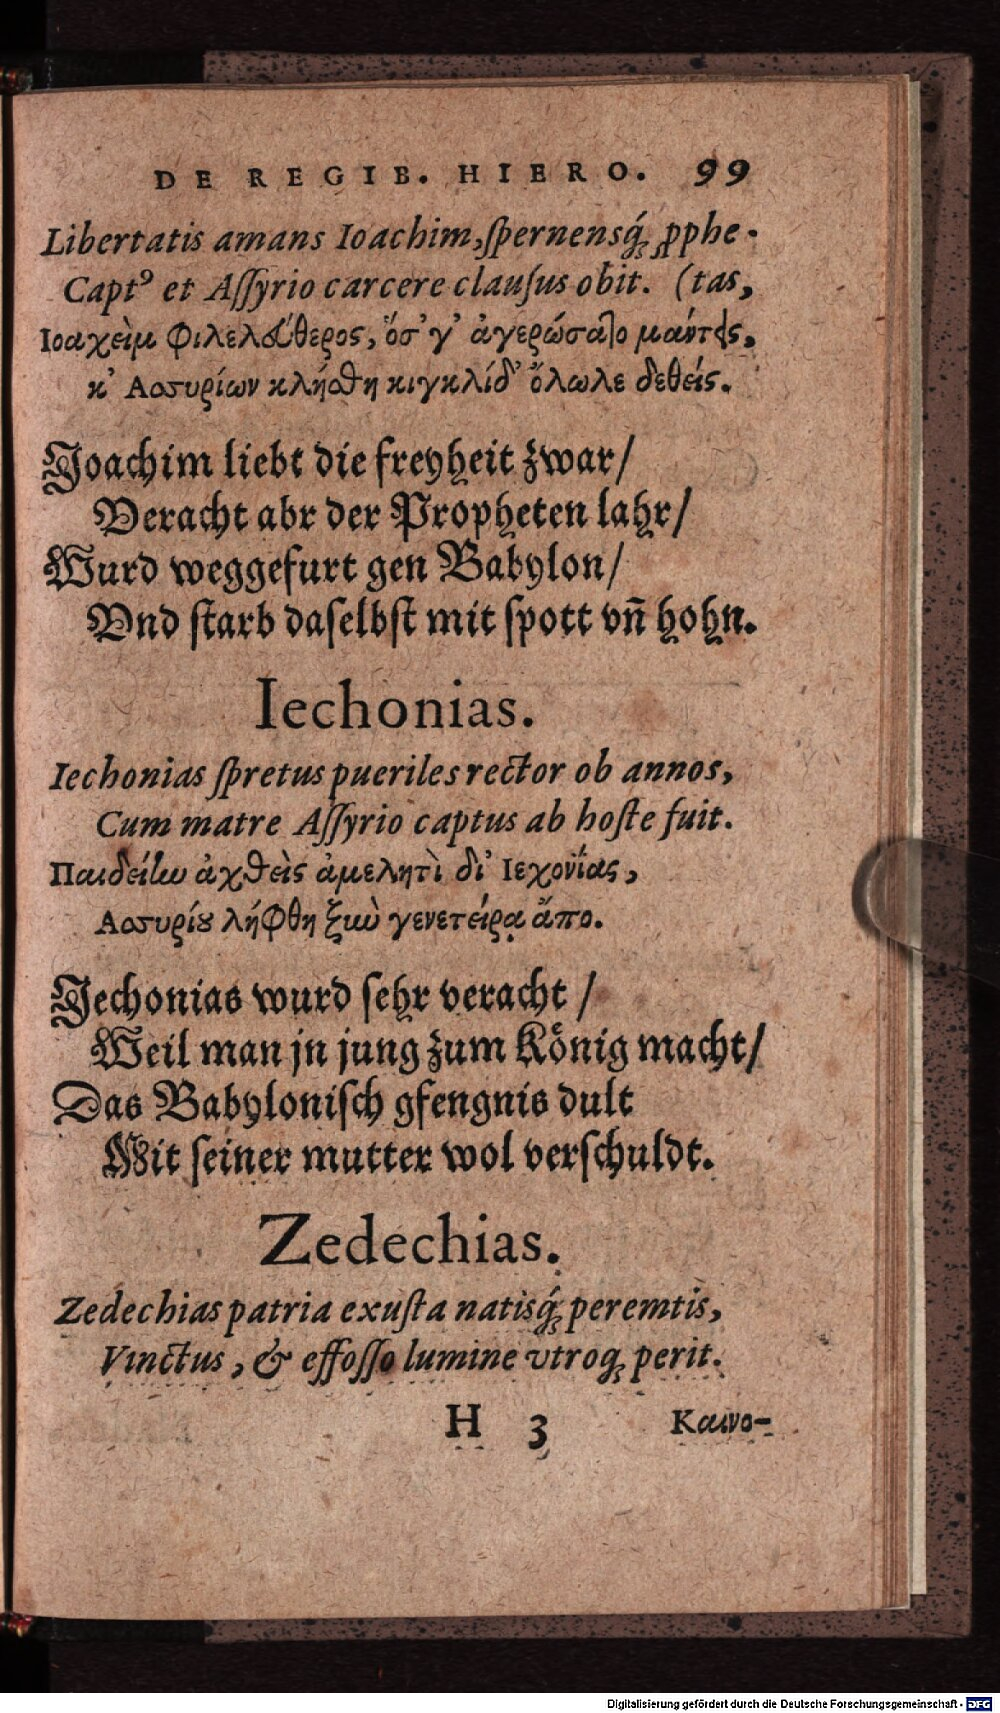 DE REGIB. HIERO. 99
Libertatis amans Ioachim, ſpernensq́; ꝓphe-
Captꝰ et Aſſyrio carcere clauſus obit. (tas,
Ιοαχεὶμ Φιλελεύθερος, ὅσ' γ' ἀγερώσατο μαύτεις,
κ' Αοσυρίων κλήσθη κιγκλίδ' ὄλωλε δεθείς.
Joachim liebt die freyheit zwar/
Veracht abr der Propheten lahr/
Wurd weggefurt gen Babylon/
Vnd ſtarb daſelbſt mit ſpott vn̄ hohn.
Iechonias.
Iechonias ſpretus pueriles rector ob annos,
Cum matre Aſſyrio captus ab hoſte fuit.
ἀχθεὶς ἀμελητὶ δι' Ιεχονΐας,
λήφθη ξὺν γενετείρᾳ ἄπο.
Jechonias wurd ſehr veracht /
Weil man jn jung zum König macht/
Das Babyloniſch gfengnis dult
Mit ſeiner mutter wol verſchuldt.
Zedechias.
Zedechias patria exuſta natisq́; peremtis,
Vinctus, & effoſſo lumine vtroq; perit.
H 3 Καινο-
Digitalisierung gefördert durch die Deutsche Forschungsgemeinschaft - DFG